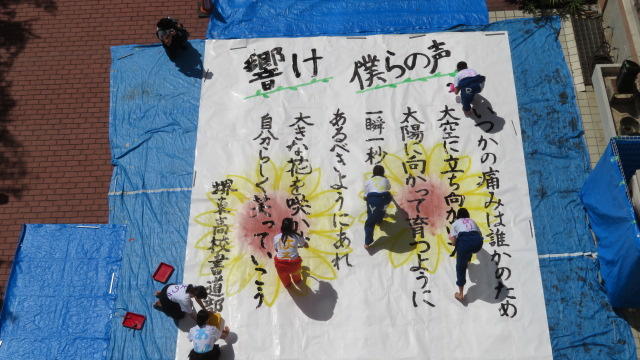 響け 僕らの声
いつかの痛みは誰かのため
大空に立ち向か
太陽に向かって育つように
一瞬一秒
あるべきようにあれ
大きな花を咲か
自分らしく笑っていこう
堺東高校書道部